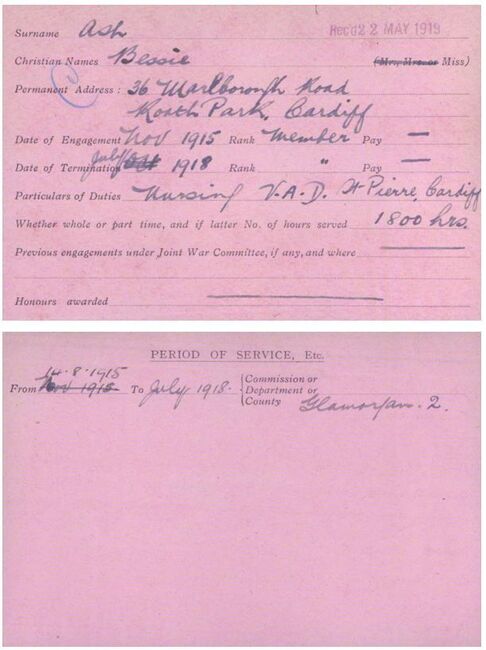 Surname Ash Rec'd 22 MAY 1919
Christian Names Bessie (Mr., Mrs. or Miss)
Permanent Address : 36 Marlborough Road
Roath Park, Cardiff
Date of Engagement Nov 1915 Rank Member Pay —
Date of Termination July 1918 Rank " Pay —
Particulars of Duties Nursing V.A.D. St Pierre, Cardiff
Whether whole or part time, and if latter No. of hours served 1800 hrs.
Previous engagements under Joint War Committee, if any, and where —
Honours awarded —
PERIOD OF SERVICE, Etc.
14.8.1915
From Nov 1915 To July 1918. { Commission or
Department or
County Glamorgan. 2.